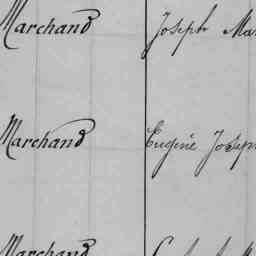 Marchand Joseph Mar
Marchand Eugène Joseph
Marchand